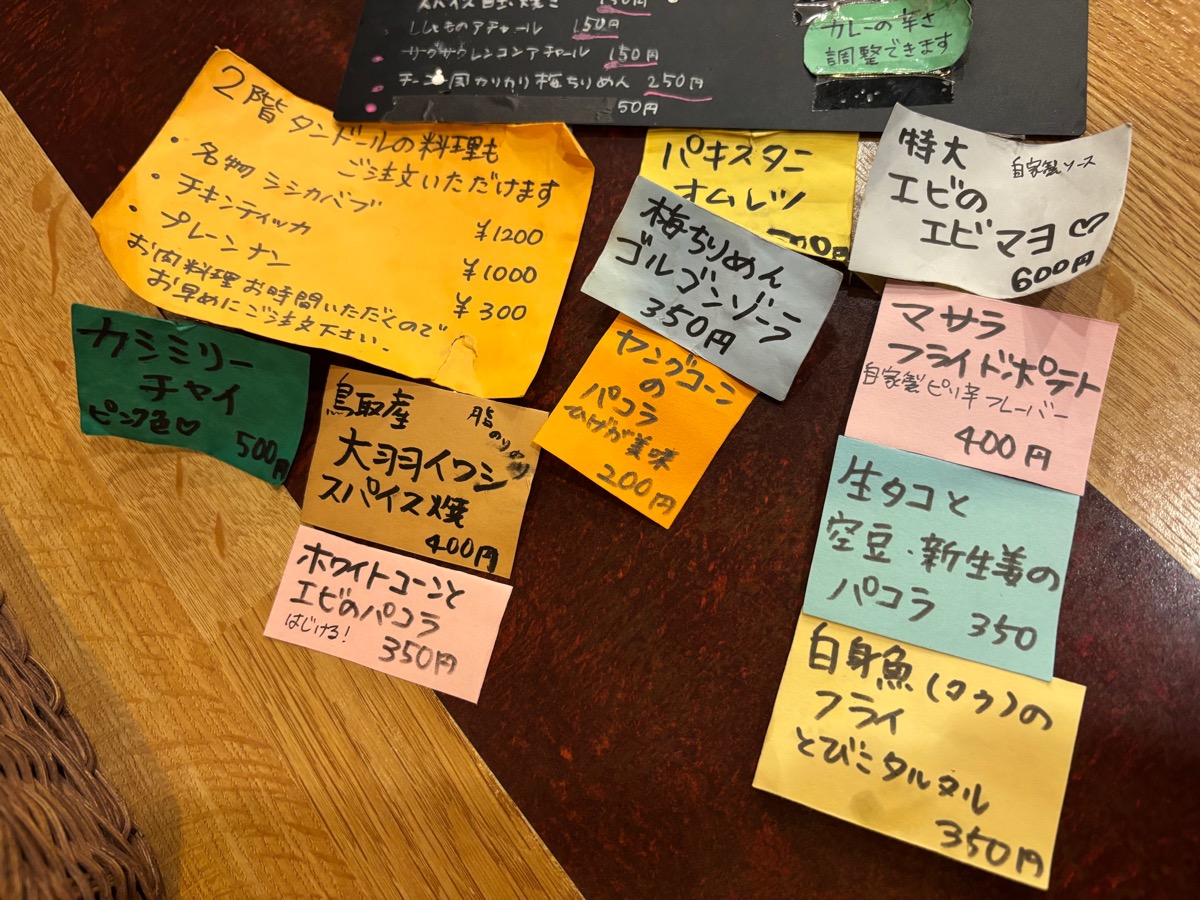 150円
ししゃものアチャール 150円
サクサクレンコンアチャール 150円
カリカリ梅ちりめん 250円
50円
カレーの辛さ
調整できます
2階タンドールの料理も
ご注文いただけます
・名物シシカバブ ¥1200
・チキンティッカ ¥1000
・プレーンナン ¥300
お肉料理お時間いただくので
お早めにご注文下さい。
パキスタニ
オムレツ
特大 自家製ソース
エビの
エビマヨ♡
600円
梅ちりめん
ゴルゴンゾーラ
350円
カシミリー
チャイ
ピンク色♡ 500円
鳥取産 脂のりのり
大羽イワシ
スパイス焼
400円
ヤングコーン
の
パコラ
ひげが美味
200円
マサラ
フライドポテト
自家製ピリ辛フレーバー
400円
ホワイトコーンと
エビのパコラ
はじける! 350円
生タコと
空豆・新生姜の
パコラ 350
白身魚(タラ)の
フライ
とびこタルタル
350円